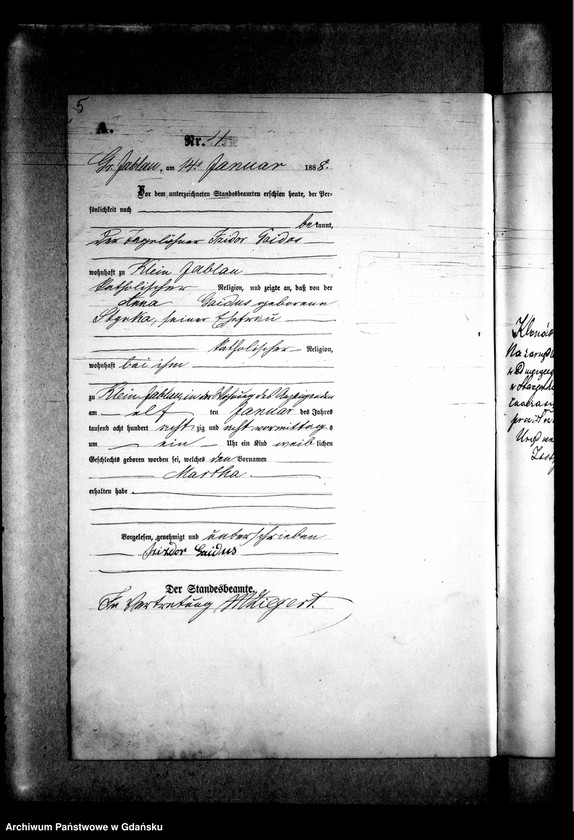 5
A.
Nr. 4.
Gr. Jablau, am 14. Januar 1888.
Vor dem unterzeichneten Standesbeamten erschien heute, der Per-
sönlichkeit nach
bekannt,
Der Tagelöhner Isidor Gaidus
wohnhaft zu Klein Jablau
katholischer Religion, und zeigte an, daß von der
Anna Gaidus geborene
seiner Ehefrau
katholischer Religion,
wohnhaft bei ihm
zu Klein Jablau, in der Wohnung des Anzeigenden
am elf ten Januar des Jahres
tausend acht hundert acht zig und acht vormittag s
um ein Uhr ein Kind weib lichen
Geschlechts geboren worden sei, welches den Vornamen
Martha
erhalten habe.
Vorgelesen, genehmigt und unterschrieben
Isidor Gaidus
Der Standesbeamte.
In Vertretung
Archiwum Państwowe w Gdańsku